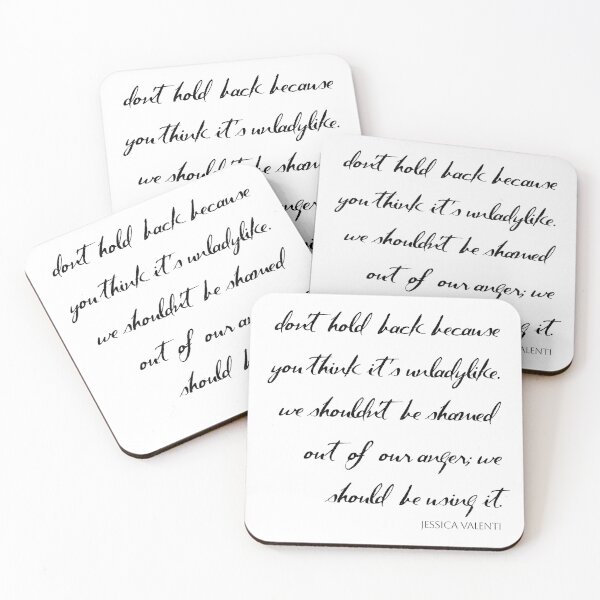 don't hold back because
you think it's unladylike.
we shouldn't be shamed
don't hold back because
you think it's unladylike.
we shouldn't be shamed
out of our anger; we
it.
VALENTI
don't hold back because
you think it's unladylike.
we shouldn't be shamed
out of our
should
don't hold back because
you think it's unladylike.
we shouldn't be shamed
out of our anger; we
should be using it.
JESSICA VALENTI